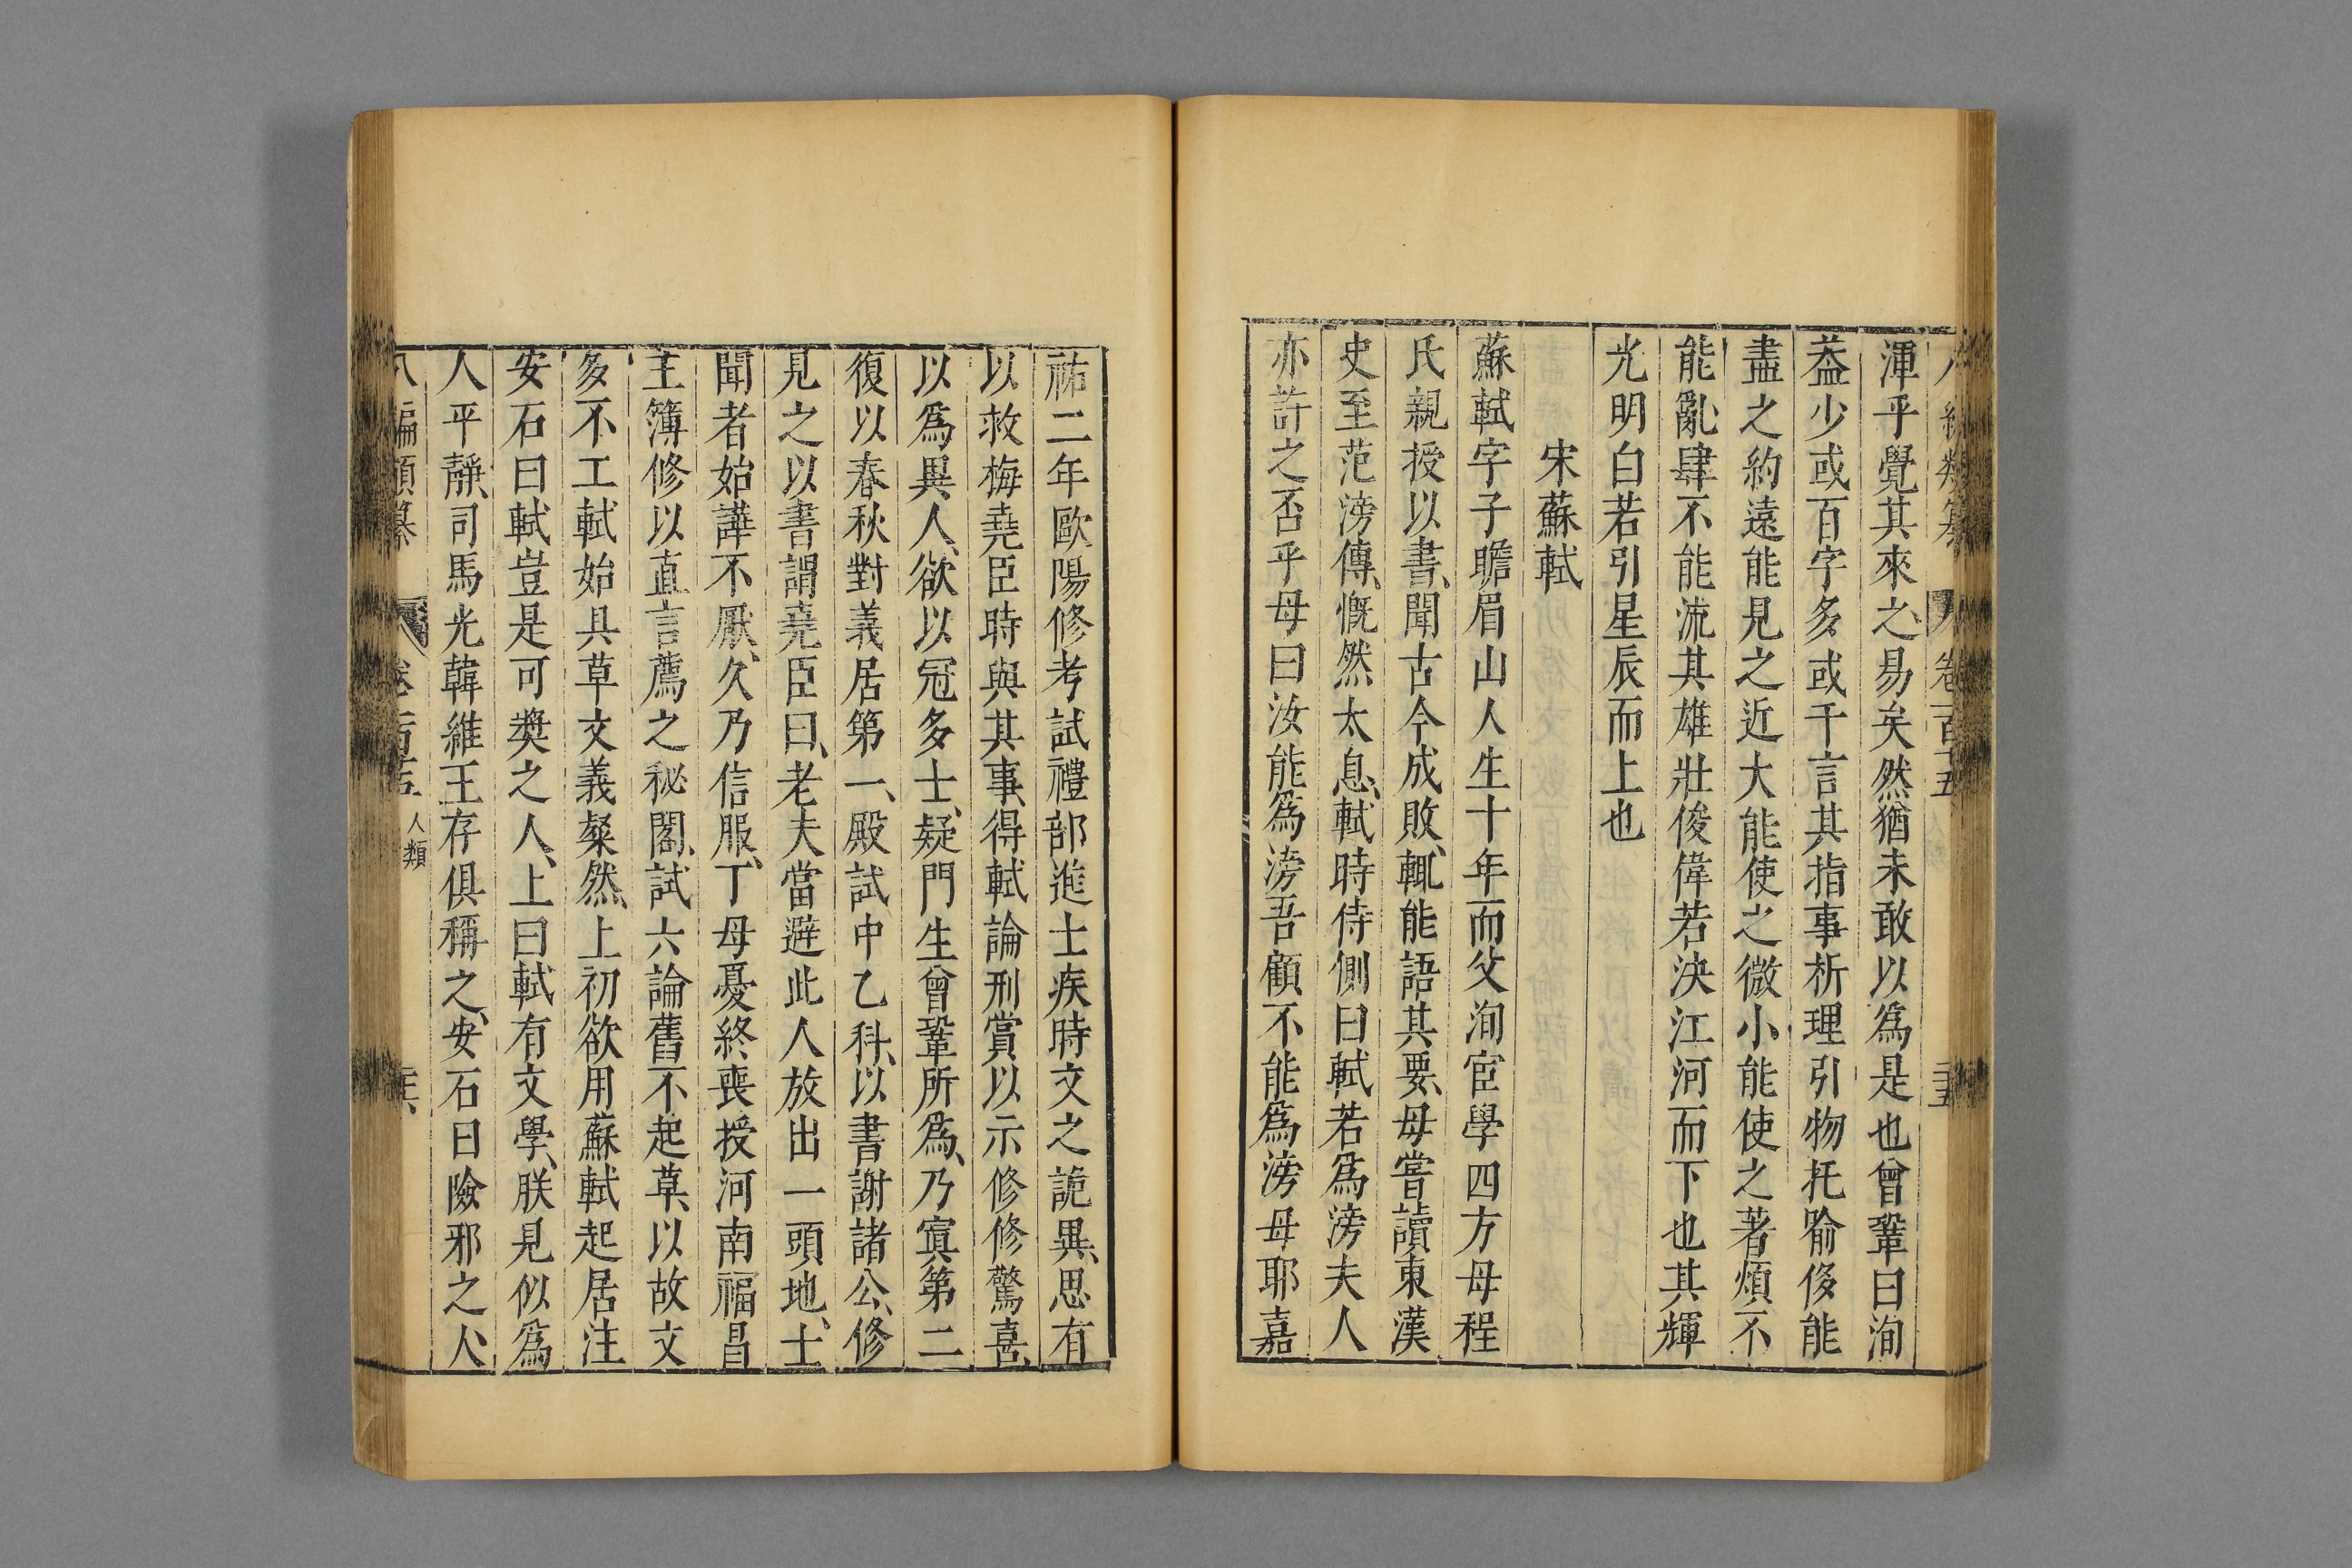 八編類纂 卷一百十五 三十五
渾乎覺其來之易矣然猶未敢以爲是也曾鞏曰洵
葢少或百字多或千言其指事析理引物托喻侈能
盡之約遠能見之近大能使之微小能使之著煩不
能亂肆不能流其雄壯俊偉若決江河而下也其輝
光明白若引星辰而上也
宋蘇軾
蘇軾字子瞻眉山人生十年而父洵宦學四方母程
氏親授以書、聞古今成敗、輒能語其要、母嘗讀東漢
史至范滂傳、慨然太息、軾時侍側曰軾若爲滂夫人
亦許之否乎母曰汝能爲滂吾顧不能爲滂母耶嘉
祐二年歐陽修考試禮部進士疾時文之詭異、思有
以救梅堯臣時與其事、得軾論刑賞以示修修驚喜、
以爲異人、欲以冠多士、疑門生曾鞏所爲、乃寘第二
復以春秋對義居第一、殿試中乙科、以書謝諸公、修
見之以書謂堯臣曰、老夫當避此人放出一頭地、士
聞者始譁不厭、久乃信服、丁母憂終喪、授河南福昌
主簿修以直言薦之秘閣、試六論舊不起草、以故文
多不工軾始具草文義粲然、上初欲用蘇軾起居注
安石曰軾豈是可獎之人、上曰軾有文學、朕見似爲
人平靜、司馬光韓維王存俱稱之、安石曰險邪之人、
八編類纂 卷一百十五 人類